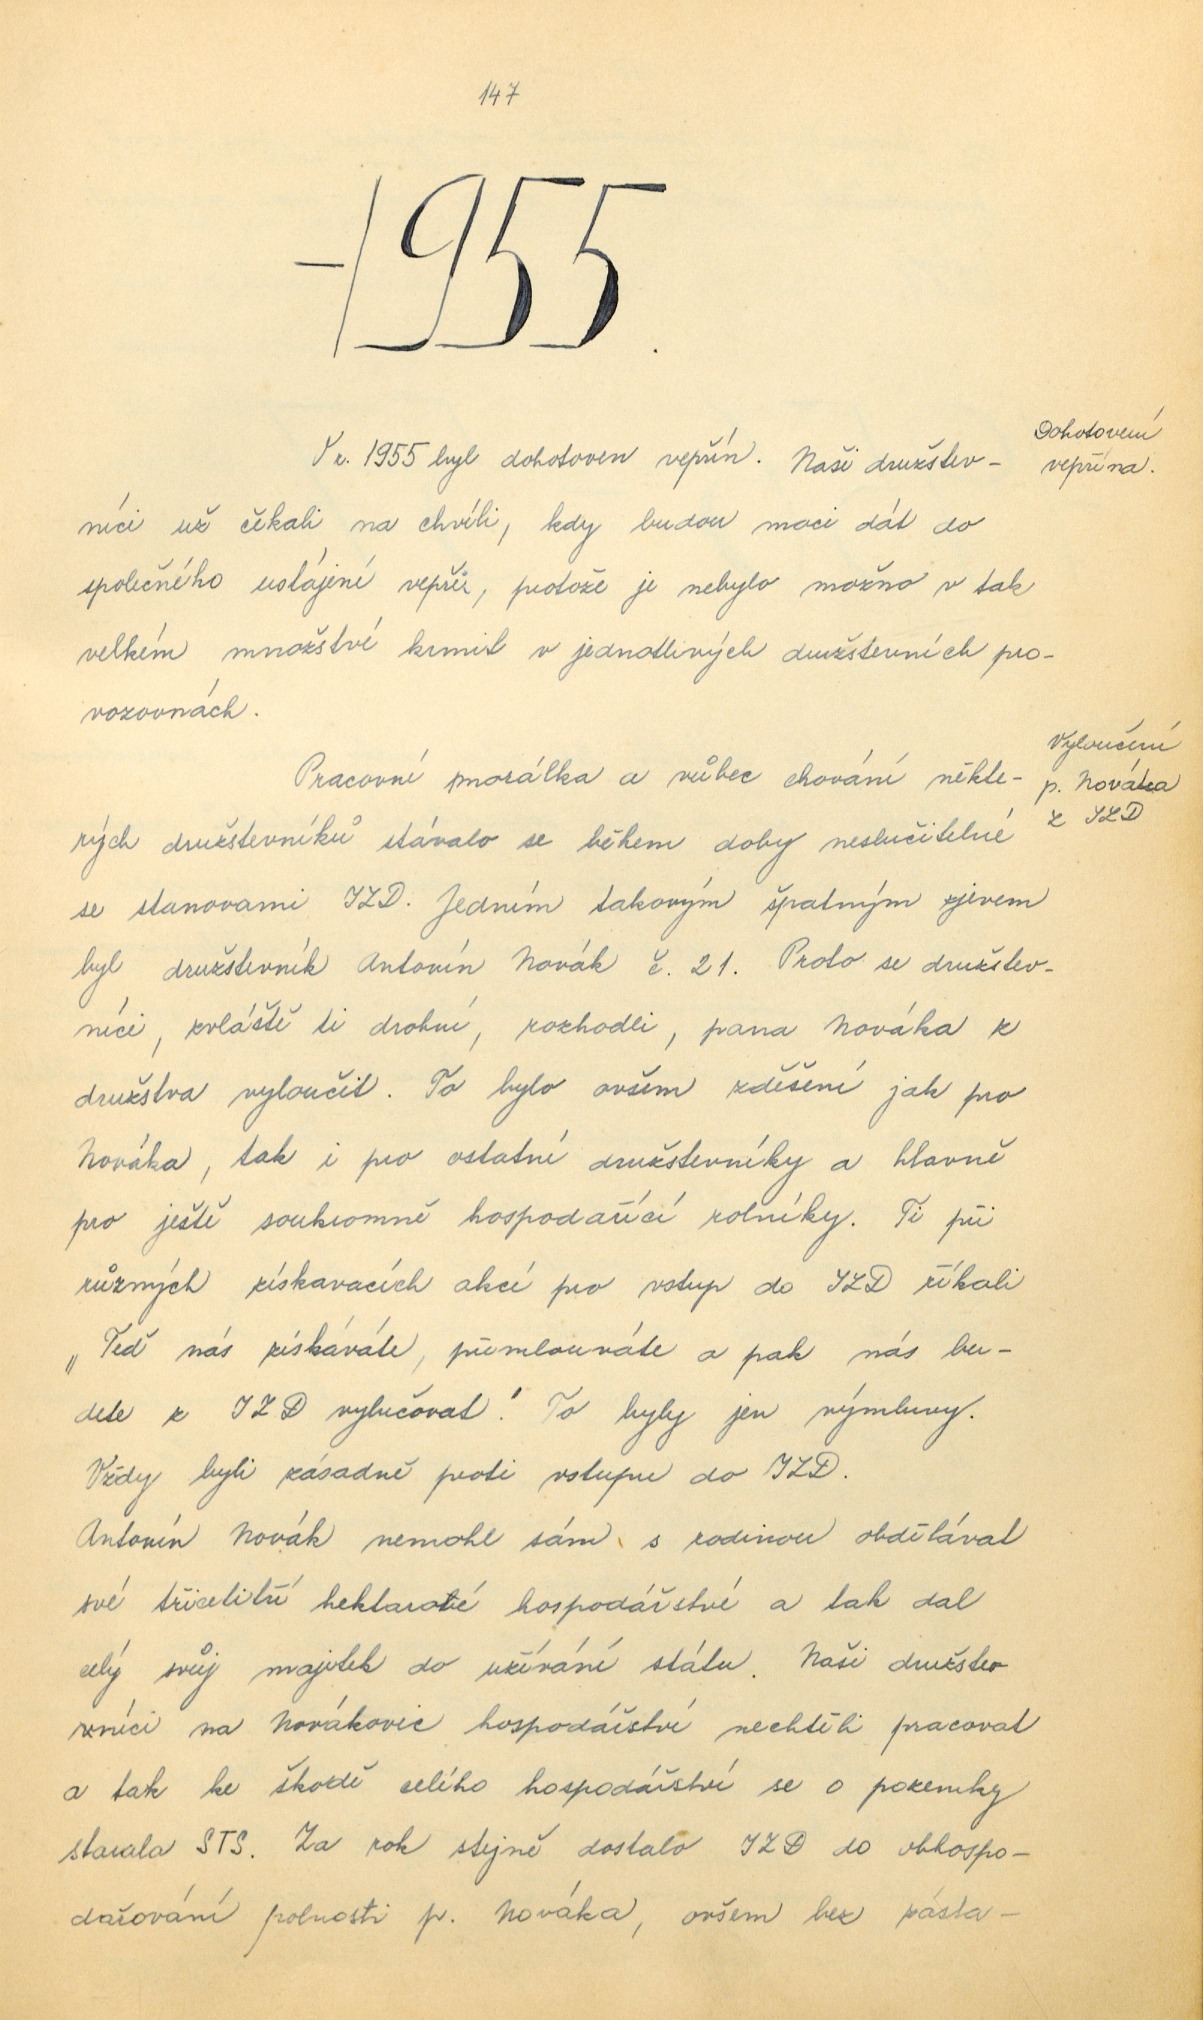 147
1955.
Dohotovení
vepřína.
V r. 1955 byl dohotoven vepřín. Naši družstev-
níci už čekali na chvíli, kdy budou moci dát do
společného ustájení vepře, protože je nebylo možno v tak
velkém množství krmit v jednotlivých družstevních pro-
vozovnách.
Vyloučení
p. Nováka
z JZD
Pracovní morálka a vůbec chování někte-
rých družstevníků stávalo se během doby neslučitelné
se stanovami JZD. Jedním takovým špatným zjevem
byl družstevník Antonín Novák č. 21. Proto se družstev-
níci, zvláště ti drobní, rozhodli, pana Nováka z
družstva vyloučit. To bylo ovšem zděšení jak pro
Nováka, tak i pro ostatní družstevníky a hlavně
pro ještě soukromně hospodařící rolníky. Ti při
různých získavacích akcí pro vstup do JZD říkali
„Teď nás získáváte, přemlouváte a pak nás bu-
dete z JZD vylučovat." To byly jen výmluvy.
Vždy byli zásadně proti vstupu do JZD.
Antonín Novák nemohl sám s rodinou obdělávat
své třicetitří hektarové hospodářství a tak dal
celý svůj majetek do užívání státu. Naši družstev
níci na Novákovic hospodářství nechtěli pracovat
a tak ke škodě celého hospodářství se o pozemky
starala STS. Za rok stejně dostalo JZD do obhospo-
dařování polnosti p. Nováka, ovšem bez zásta-